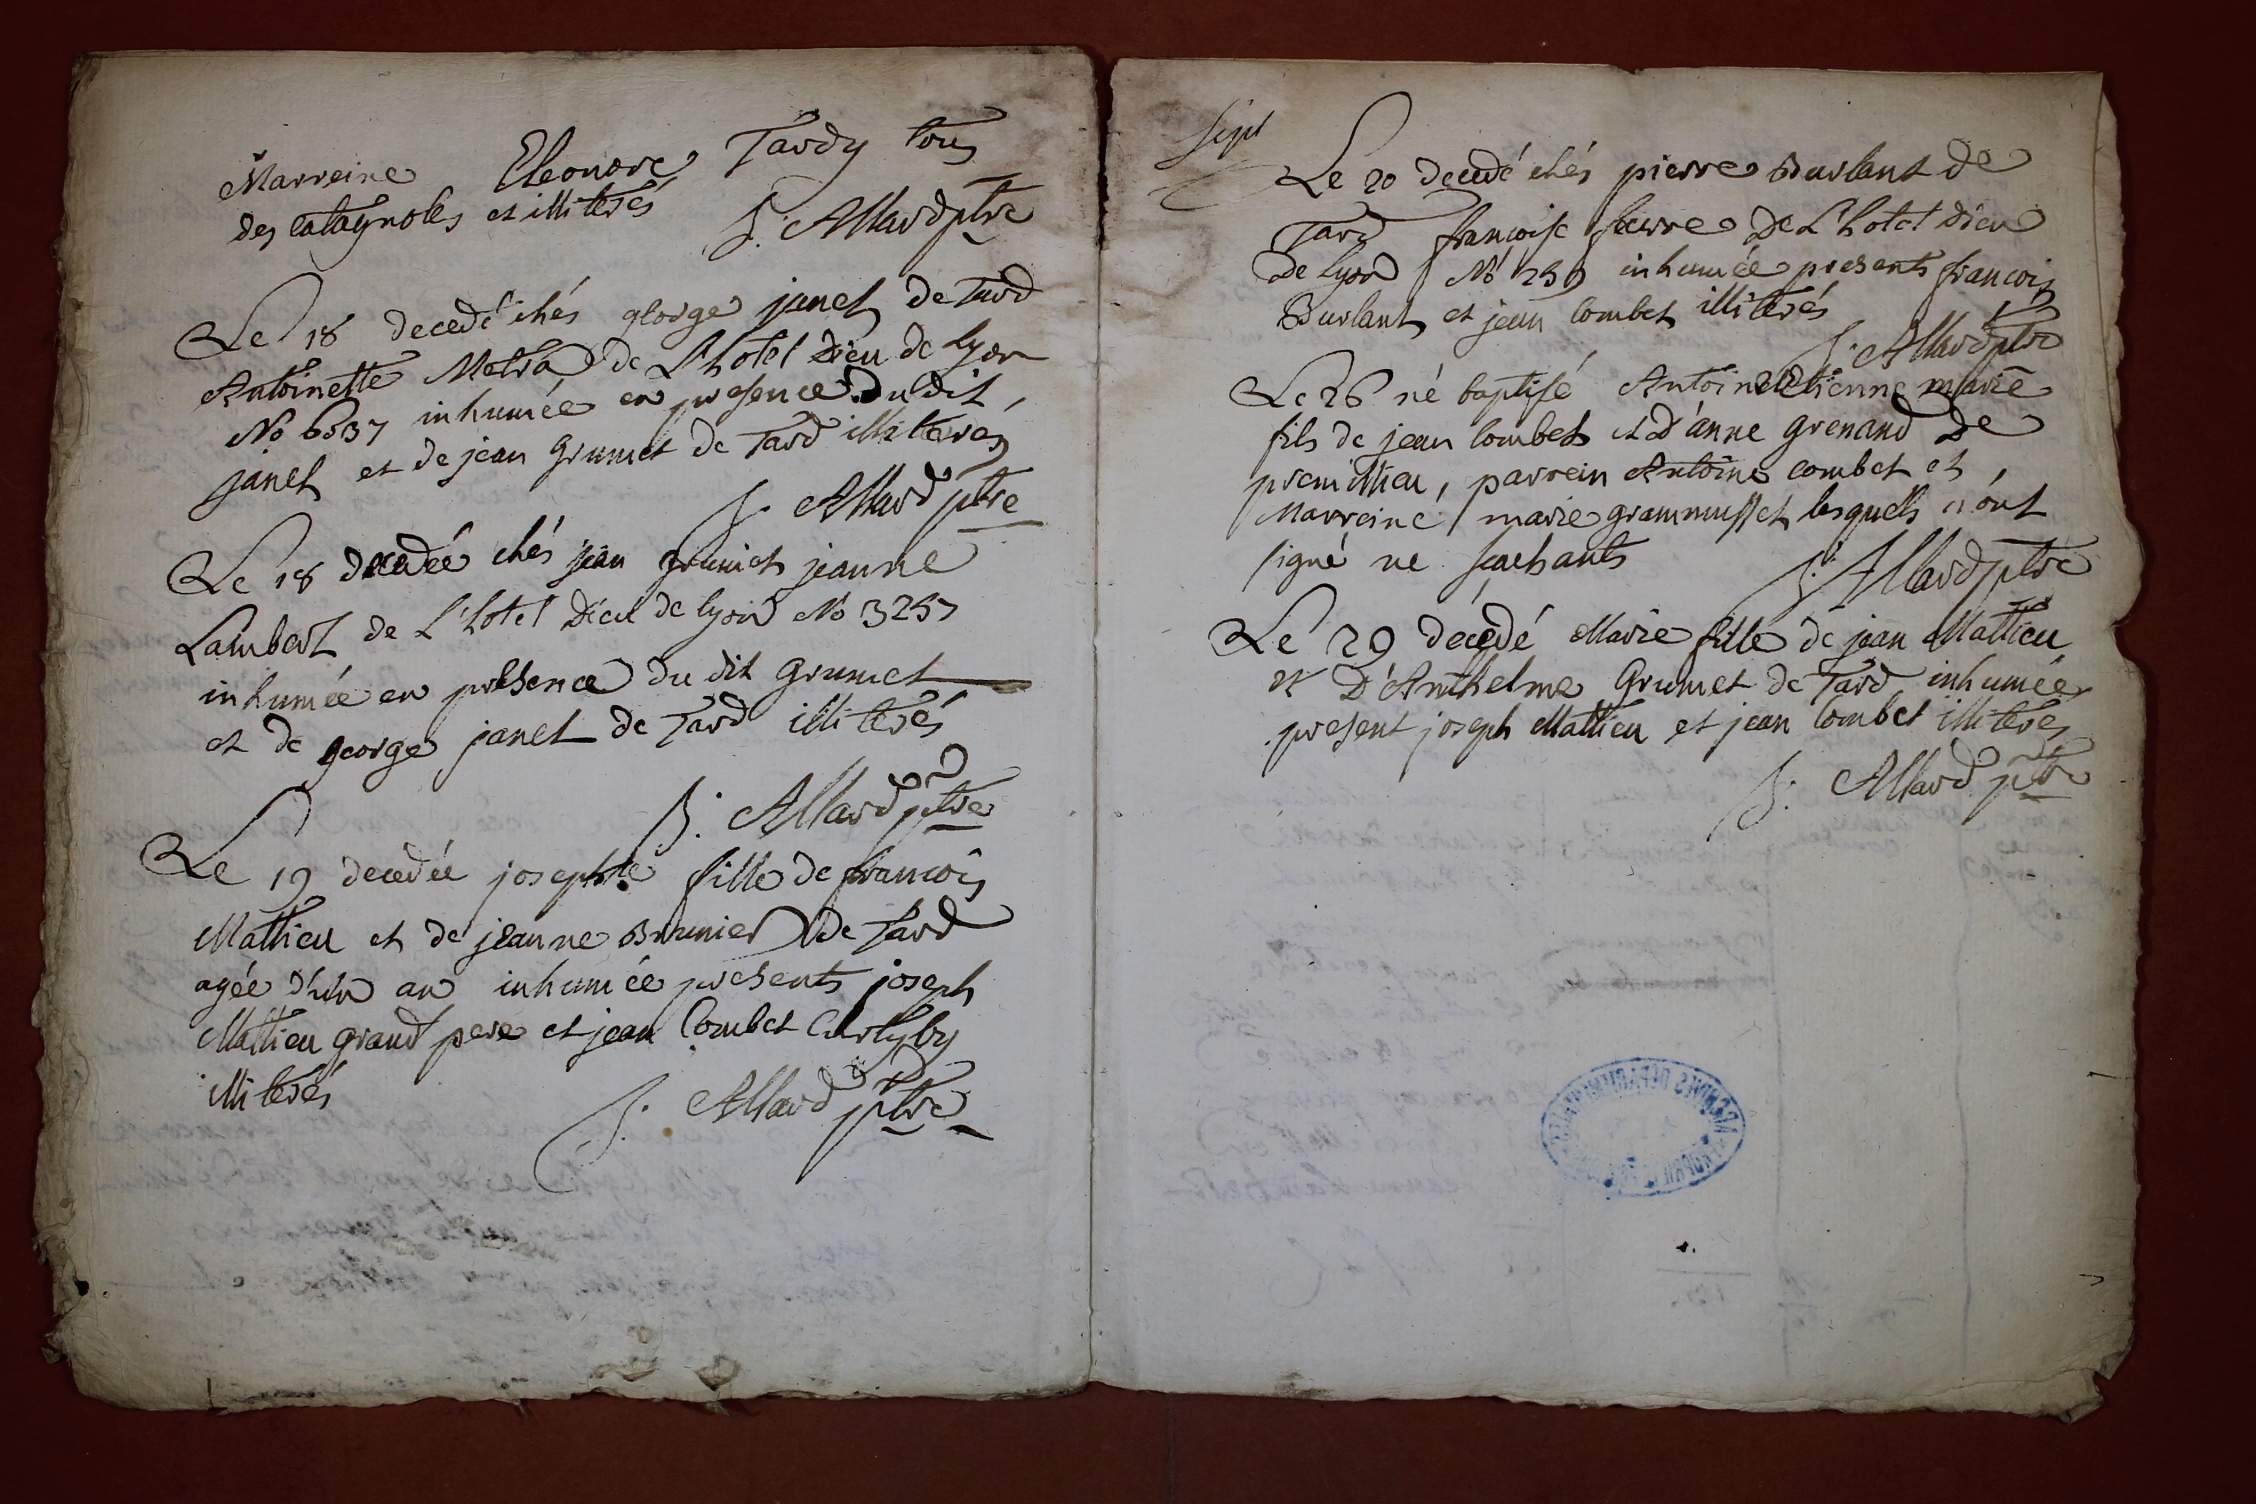 Marreine Eleonore Tardy tous
des catagnoles et illiterés
J. Allard ptre
Le 18 decedé chés george janet de Tard
Antoinette Metra de L'hotel Dieu de Lyon
No 6537 inhumée en presence du dit
janet et de jean Grumet de Tard illiterés
J. Allard ptre
Le 18 decedée chés jean grumet jeanne
Lambert de L'hotel Dieu de lyon No 3257
inhumée en presence du dit Grumet
et de george janet de Tard illiterés
J. Allard ptre
Le 19 decedée josephte fille de francois
Mathieu et de jeanne Brunier de Tard
agée d'un an inhumée presents joseph
Mathieu grand pere et jean Combet
illiterés
J. Allard ptre
Sept
Le 20 decedé chés pierre Burlant de
Tard françoise feurre de L'hotel Dieu
de Lyon No 259 inhumée presents francois
Burlant et jean Combet illiterés
J. Allard ptre
Le 26 né baptisé Antoine Etienne marie
fils de jean Combet et D'anne Grenand de
premillieu, parrein Antoine combet et
Marreine marie grammusset lesquels n'ont
signé ne scachants
J. Allard ptre
Le 29 décedé Marie fille de jean Mathieu
et D'Anthelme Grumet de Tard inhumée
present joseph Mathieu et jean Combet illiterés
J. Allard ptre